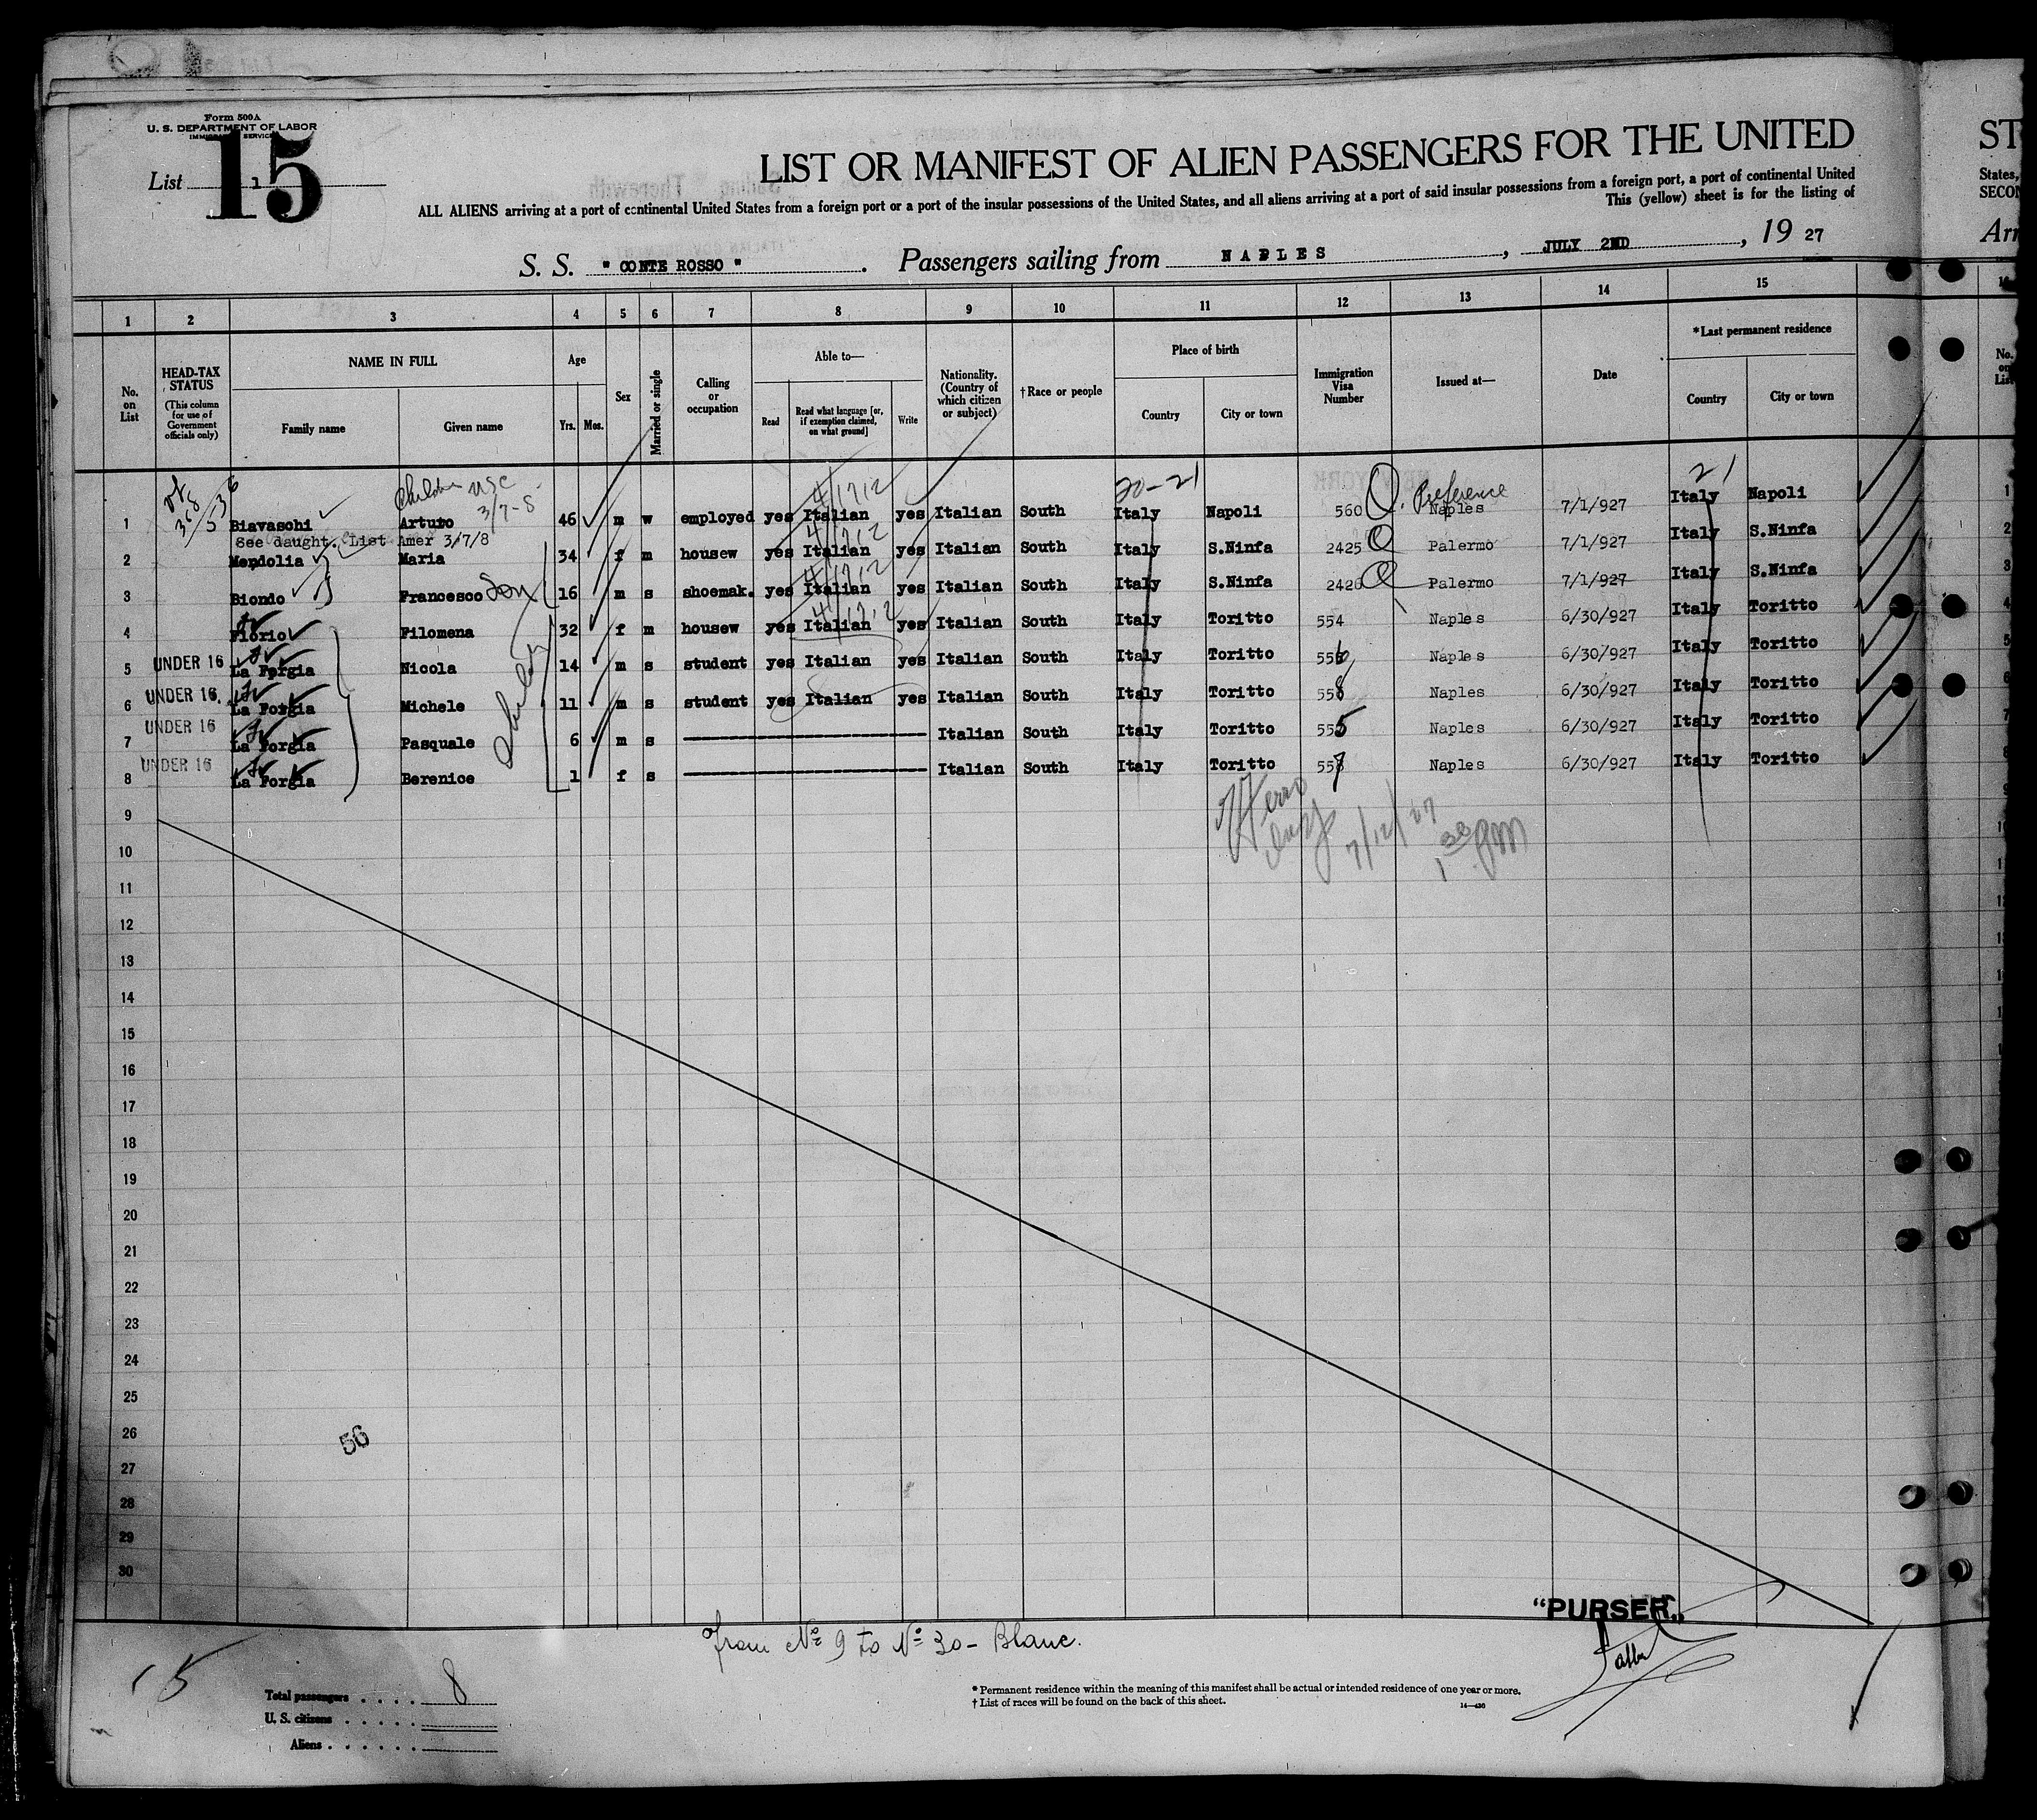 Form 500A
U. S. DEPARTMENT OF LABOR
IMMIGRATION SERVICE
List 1
15
LIST OR MANIFEST OF ALIEN PASSENGERS FOR THE UNITED
ST
ALL ALIENS arriving at a port of continental United States from a foreign port or a port of the insular possessions of the United States, and all aliens arriving at a port of said insular possessions from a foreign port, a port of continental United
States,
This (yellow) sheet is for the listing of
SECON
S. S. " CONTE ROSSO " . Passengers sailing from NAPLES , JULY 2ND , 19 27
Arr
1 2 3 4 5 6 7 8 9 10 11 12 13 14 15
No. on List
HEAD-TAX STATUS
(This column for use of Government officials only)
NAME IN FULL
Family name
Given name
Age
Yrs. Mos.
Sex
Married or single
Calling or occupation
Able to—
Read
Read what language [or, if exemption claimed, on what ground]
Write
Nationality. (Country of which citizen or subject)
†Race or people
Place of birth
Country
City or town
Immigration Visa Number
Issued at—
Date
*Last permanent residence
Country
City or town
No. on List
Children USC 3/7-8
4/1712
20-21
Q. Preference
21
1 Biavaschi Arturo 46 m w employed yes Italian yes Italian South Italy Napoli 560 Naples 7/1/927 Italy Napoli 1
See daught. List Amer 3/7/8
2 Mendolia Maria 34 f m housew yes Italian yes Italian South Italy S.Ninfa 2425 Palermo 7/1/927 Italy S.Ninfa 2
3 Biondo Francesco Son 16 m s shoemak. yes Italian yes Italian South Italy S.Ninfa 2426 Palermo 7/1/927 Italy S.Ninfa 3
4 Fiorio Filomena 32 f m housew yes Italian yes Italian South Italy Toritto 554 Naples 6/30/927 Italy Toritto 4
5 UNDER 16 La Forgia Nicola 14 m s student yes Italian yes Italian South Italy Toritto 556 Naples 6/30/927 Italy Toritto 5
6 UNDER 16 La Forgia Michele 11 m s student yes Italian yes Italian South Italy Toritto 558 Naples 6/30/927 Italy Toritto 6
7 UNDER 16 La Forgia Pasquale 6 m s Italian South Italy Toritto 555 Naples 6/30/927 Italy Toritto 7
8 UNDER 16 La Forgia Berenice 1 f s Italian South Italy Toritto 557 Naples 6/30/927 Italy Toritto 8
Children
7/12/27
1 30 pm
9
10
11
12
13
14
15
16
17
18
19
20
21
22
23
24
25
26
27
28
29
30
56
"PURSER„
From No 9 to No 30 - Blanc.
15
Total passengers . . . . 8
U. S. citizens . . . . .
Aliens . . . . . .
* Permanent residence within the meaning of this manifest shall be actual or intended residence of one year or more.
† List of races will be found on the back of this sheet.
14—430